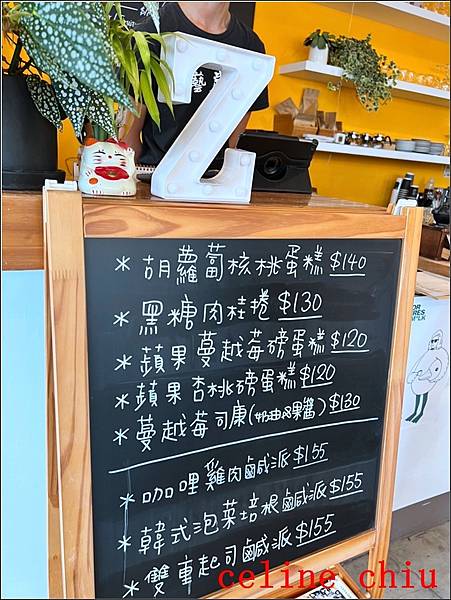 藝
Z
* 胡蘿蔔核桃蛋糕 $140
* 黑糖肉桂捲 $130
* 蘋果蔓越莓磅蛋糕 $120
* 蘋果杏桃磅蛋糕 $120
* 蔓越莓司康(奶油&果醬) $130
* 咖哩雞肉鹹派 $155
* 韓式泡菜培根鹹派 $155
* 雙重起司鹹派 $155
celine chiu